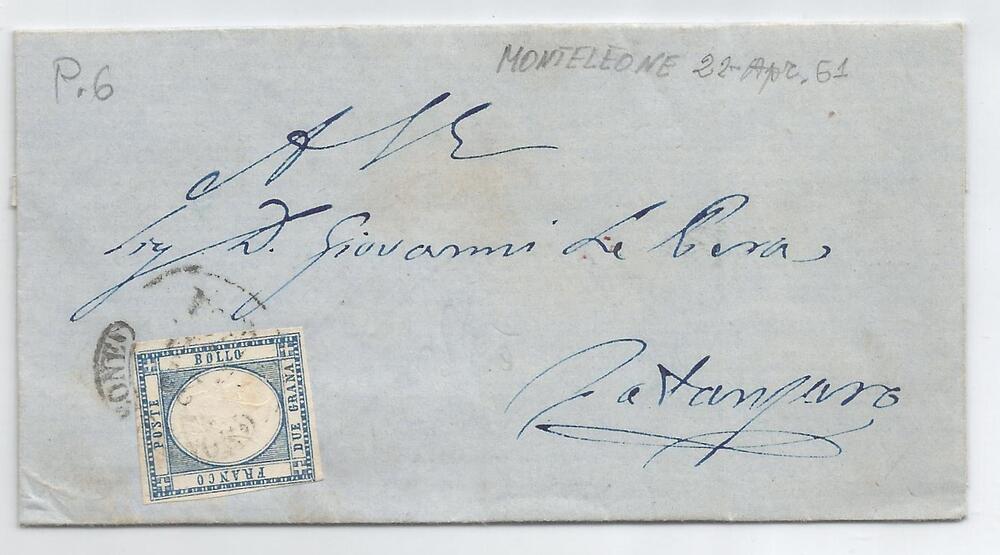 P.6
MONTELEONE 22 Apr. 61
A S E
Sig D. Giovanni Le Pera
Catanzaro
BOLLO
POSTE
DUE GRANA
FRANCO